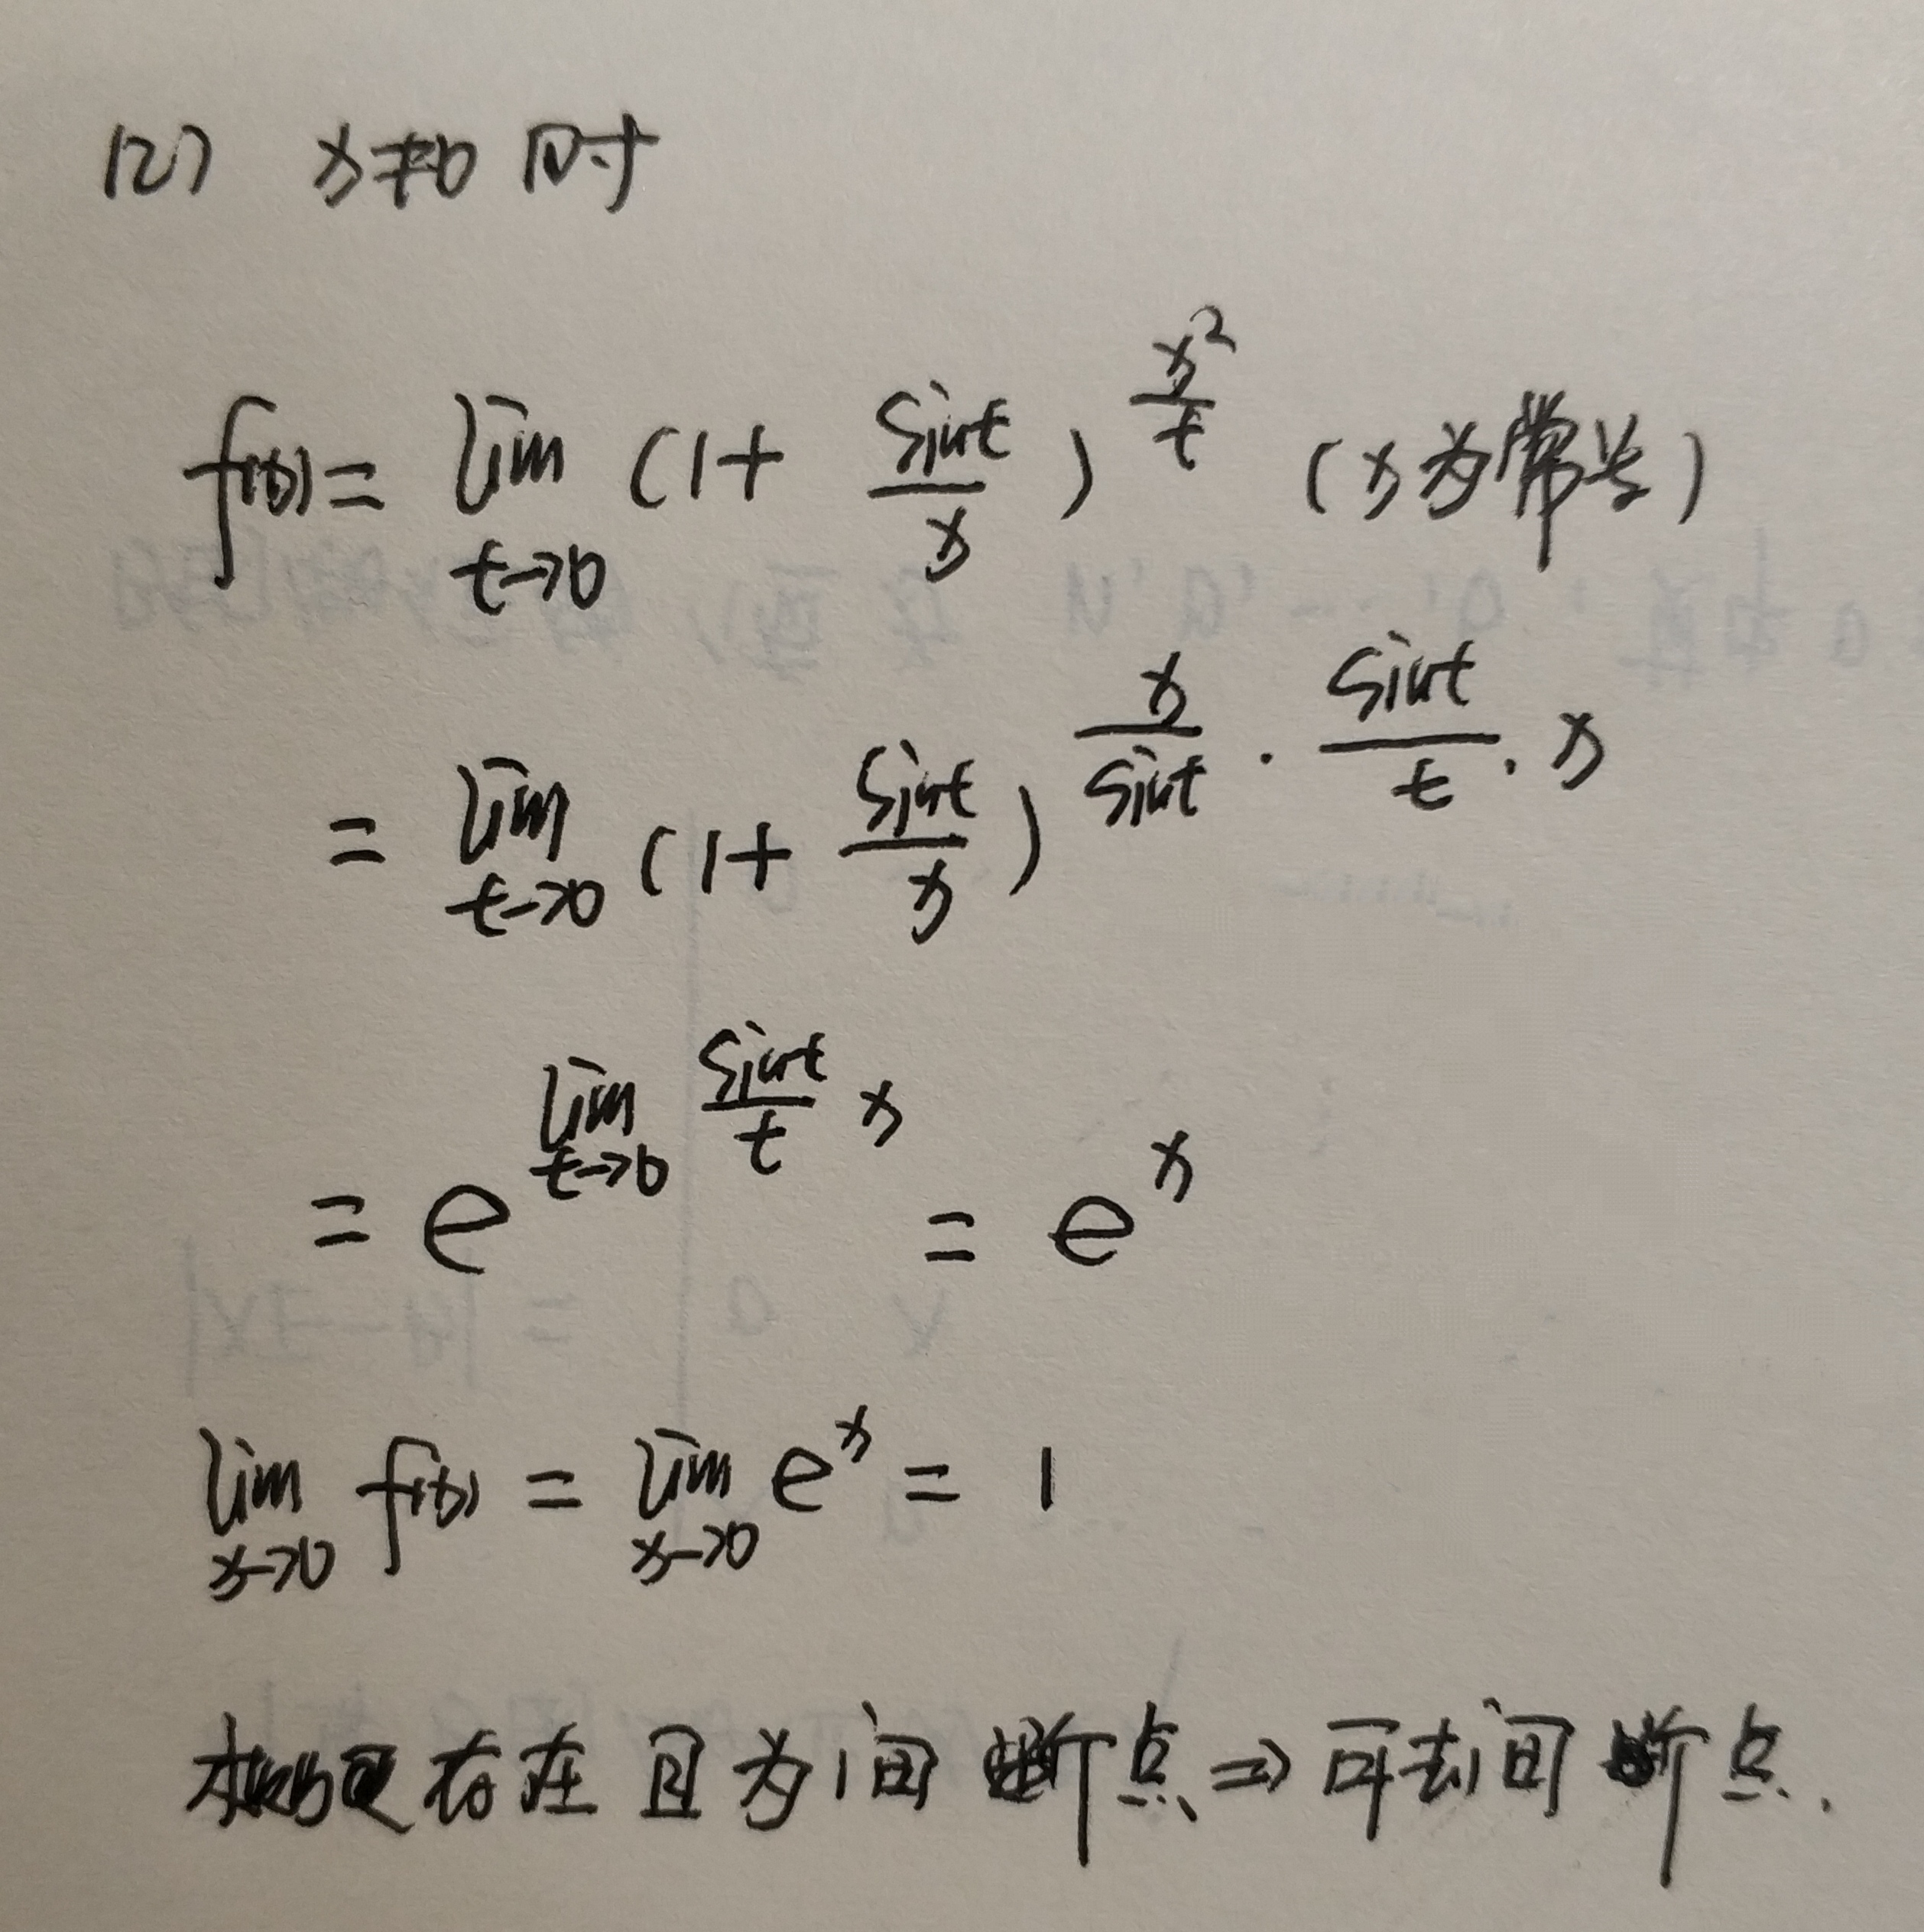 (2) x≠0 时
f(x) = lim_{t→0} (1 + sint/x)^{x²/t} (x为常数)
= lim_{t→0} (1 + sint/x)^{x/sint · sint/t · x}
= e^{lim_{t→0} sint/t x} = e^x
lim_{x→0} f(x) = lim_{x→0} e^x = 1
极限存在且为间断点 ⇒ 可去间断点.